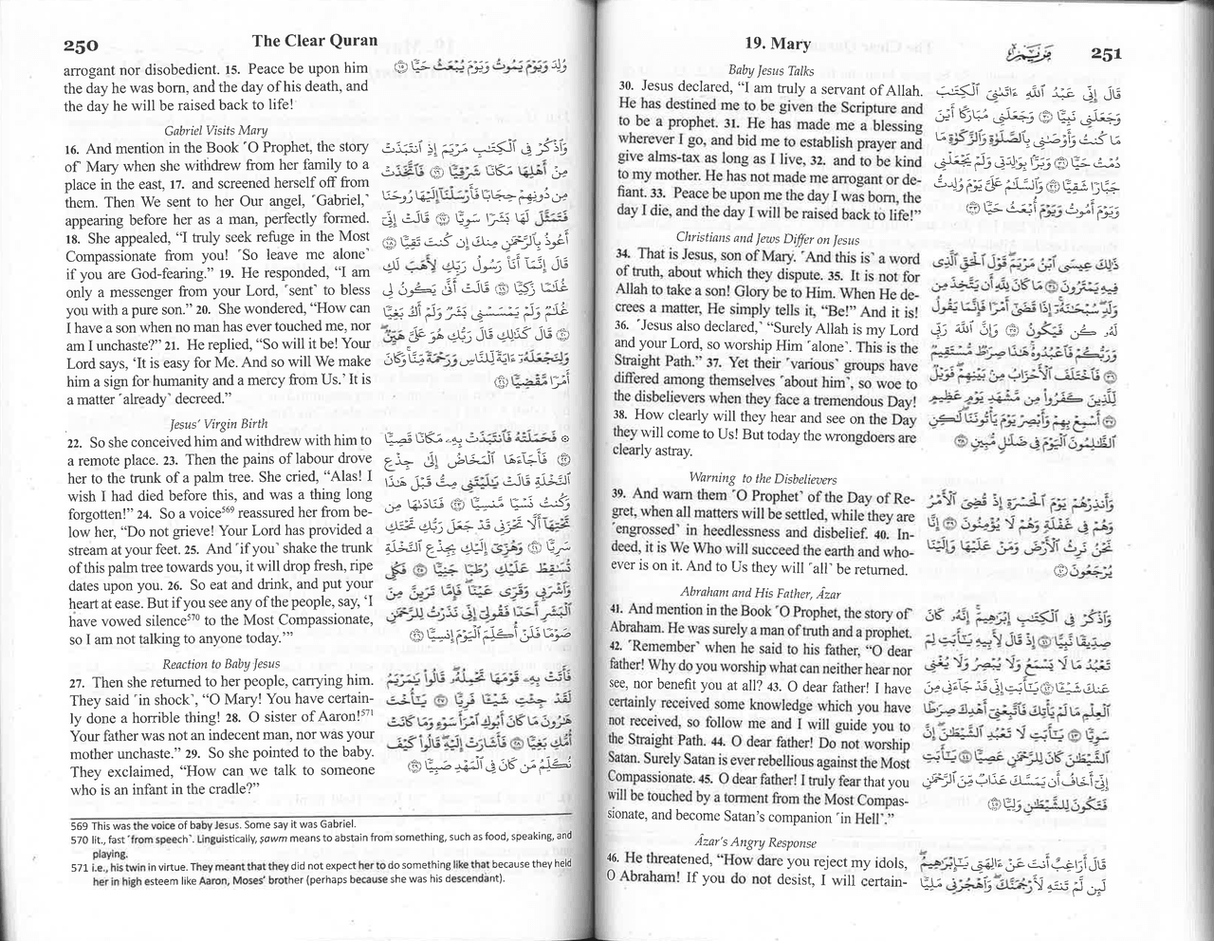 250
The Clear Quran
arrogant nor disobedient. 15. Peace be upon him
the day he was born, and the day of his death, and
the day he will be raised back to life!
ولد ويوم يموت ويوم يبعث حيا ١٥
Gabriel Visits Mary
16. And mention in the Book ˹O Prophet, the story
of˺ Mary when she withdrew from her family to a
place in the east, 17. and screened herself off from
them. Then We sent to her Our angel, ˹Gabriel,˺
appearing before her as a man, perfectly formed.
18. She appealed, “I truly seek refuge in the Most
Compassionate from you! ˹So leave me alone˺
if you are God-fearing.” 19. He responded, “I am
only a messenger from your Lord, ˹sent˺ to bless
you with a pure son.” 20. She wondered, “How can
I have a son when no man has ever touched me, nor
am I unchaste?” 21. He replied, “So will it be! Your
Lord says, ‘It is easy for Me. And so will We make
him a sign for humanity and a mercy from Us.’ It is
a matter ˹already˺ decreed.”
وٱذكر فى ٱلكتب مريم إذ ٱنتبذت
من أهلها مكانا شرقيا ١٦ فٱتخذت
من دونهم حجابا فأرسلنا إليها روحنا
فتمثل لها بشرا سويا ١٧ قالت إنى
أعوذ بٱلرحمن منك إن كنت تقيا ١٨
قال إنما أنا رسول ربك لأهب لك
غلما زكيا ١٩ قالت أنى يكون لى
غلم ولم يمسسنى بشر ولم أك بغيا
٢٠ قال كذلك قال ربك هو على هين
ولنجعله ءاية للناس ورحمة منا وكان
أمرا مقضيا ٢١
Jesus’ Virgin Birth
22. So she conceived him and withdrew with him to
a remote place. 23. Then the pains of labour drove
her to the trunk of a palm tree. She cried, “Alas! I
wish I had died before this, and was a thing long
forgotten!” 24. So a voice569 reassured her from be-
low her, “Do not grieve! Your Lord has provided a
stream at your feet. 25. And ˹if you˺ shake the trunk
of this palm tree towards you, it will drop fresh, ripe
dates upon you. 26. So eat and drink, and put your
heart at ease. But if you see any of the people, say, ‘I
have vowed silence570 to the Most Compassionate,
so I am not talking to anyone today.’”
۞ فحملته فٱنتبذت به مكانا قصيا
٢٢ فأجاءها ٱلمخاض إلى جذع
ٱلنخلة قالت يليتنى مت قبل هذا
وكنت نسيا منسيا ٢٣ فنادىها من
تحتها ألا تحزنى قد جعل ربك تحتك
سريا ٢٤ وهزى إليك بجذع ٱلنخلة
تسقط عليك رطبا جنيا ٢٥ فكلى
وٱشربى وقرى عينا فإما ترين من
ٱلبشر أحدا فقولى إنى نذرت للرحمن
صوما فلن أكلم ٱليوم إنسيا ٢٦
Reaction to Baby Jesus
27. Then she returned to her people, carrying him.
They said ˹in shock˺, “O Mary! You have certain-
ly done a horrible thing! 28. O sister of Aaron!571
Your father was not an indecent man, nor was your
mother unchaste.” 29. So she pointed to the baby.
They exclaimed, “How can we talk to someone
who is an infant in the cradle?”
فأتت به قومها تحمله قالوا يمريم
لقد جئت شيئا فريا ٢٧ يأخت
هرون ما كان أبوك ٱمرأ سوء وما كانت
أمك بغيا ٢٨ فأشارت إليه قالوا كيف
نكلم من كان فى ٱلمهد صبيا ٢٩
569 This was the voice of baby Jesus. Some say it was Gabriel.
570 lit., fast ˹from speech˺. Linguistically, ṣawm means to abstain from something, such as food, speaking, and
playing.
571 i.e., his twin in virtue. They meant that they did not expect her to do something like that because they held
her in high esteem like Aaron, Moses’ brother (perhaps because she was his descendant).
19. Mary
مريم
251
Baby Jesus Talks
30. Jesus declared, “I am truly a servant of Allah.
He has destined me to be given the Scripture and
to be a prophet. 31. He has made me a blessing
wherever I go, and bid me to establish prayer and
give alms-tax as long as I live, 32. and to be kind
to my mother. He has not made me arrogant or de-
fiant. 33. Peace be upon me the day I was born, the
day I die, and the day I will be raised back to life!”
قال إنى عبد ٱلله ءاتىنى ٱلكتب
وجعلنى نبيا ٣٠ وجعلنى مباركا أين
ما كنت وأوصنى بٱلصلوة وٱلزكوة ما
دمت حيا ٣١ وبرا بولدتى ولم يجعلنى
جبارا شقيا ٣٢ وٱلسلم على يوم ولدت
ويوم أموت ويوم أبعث حيا ٣٣
Christians and Jews Differ on Jesus
34. That is Jesus, son of Mary. ˹And this is˺ a word
of truth, about which they dispute. 35. It is not for
Allah to take a son! Glory be to Him. When He de-
crees a matter, He simply tells it, “Be!” And it is!
36. ˹Jesus also declared,˺ “Surely Allah is my Lord
and your Lord, so worship Him ˹alone˺. This is the
Straight Path.” 37. Yet their ˹various˺ groups have
differed among themselves ˹about him˺, so woe to
the disbelievers when they face a tremendous Day!
38. How clearly will they hear and see on the Day
they will come to Us! But today the wrongdoers are
clearly astray.
ذلك عيسى ٱبن مريم قول ٱلحق ٱلذى
فيه يمترون ٣٤ ما كان لله أن يتخذ من
ولد سبحنه إذا قضى أمرا فإنما يقول
له كن فيكون ٣٥ وإن ٱلله ربى
وربكم فٱعبدوه هذا صرط مستقيم
٣٦ فٱختلف ٱلأحزاب من بينهم فويل
للذين كفروا من مشهد يوم عظيم
٣٧ أسمع بهم وأبصر يوم يأتوننا لكن
ٱلظلمون ٱليوم فى ضلل مبين ٣٨
Warning to the Disbelievers
39. And warn them ˹O Prophet˺ of the Day of Re-
gret, when all matters will be settled, while they are
˹engrossed˺ in heedlessness and disbelief. 40. In-
deed, it is We Who will succeed the earth and who-
ever is on it. And to Us they will ˹all˺ be returned.
وأنذرهم يوم ٱلحسرة إذ قضى ٱلأمر
وهم فى غفلة وهم لا يؤمنون ٣٩ إنا
نحن نرث ٱلأرض ومن عليها وإلينا
يرجعون ٤٠
Abraham and His Father, Âzar
41. And mention in the Book ˹O Prophet, the story of˺
Abraham. He was surely a man of truth and a prophet.
42. ˹Remember˺ when he said to his father, “O dear
father! Why do you worship what can neither hear nor
see, nor benefit you at all? 43. O dear father! I have
certainly received some knowledge which you have
not received, so follow me and I will guide you to
the Straight Path. 44. O dear father! Do not worship
Satan. Surely Satan is ever rebellious against the Most
Compassionate. 45. O dear father! I truly fear that you
will be touched by a torment from the Most Compas-
sionate, and become Satan’s companion ˹in Hell˺.”
وٱذكر فى ٱلكتب إبرهيم إنه كان
صديقا نبيا ٤١ إذ قال لأبيه يأبت لم
تعبد ما لا يسمع ولا يبصر ولا يغنى
عنك شيئا ٤٢ يأبت إنى قد جاءنى من
ٱلعلم ما لم يأتك فٱتبعنى أهدك صرطا
سويا ٤٣ يأبت لا تعبد ٱلشيطن إن
ٱلشيطن كان للرحمن عصيا ٤٤ يأبت
إنى أخاف أن يمسك عذاب من ٱلرحمن
فتكون للشيطن وليا ٤٥
Âzar’s Angry Response
46. He threatened, “How dare you reject my idols,
O Abraham! If you do not desist, I will certain-
قال أراغب أنت عن ءالهتى يإبرهيم
لئن لم تنته لأرجمنك وٱهجرنى مليا